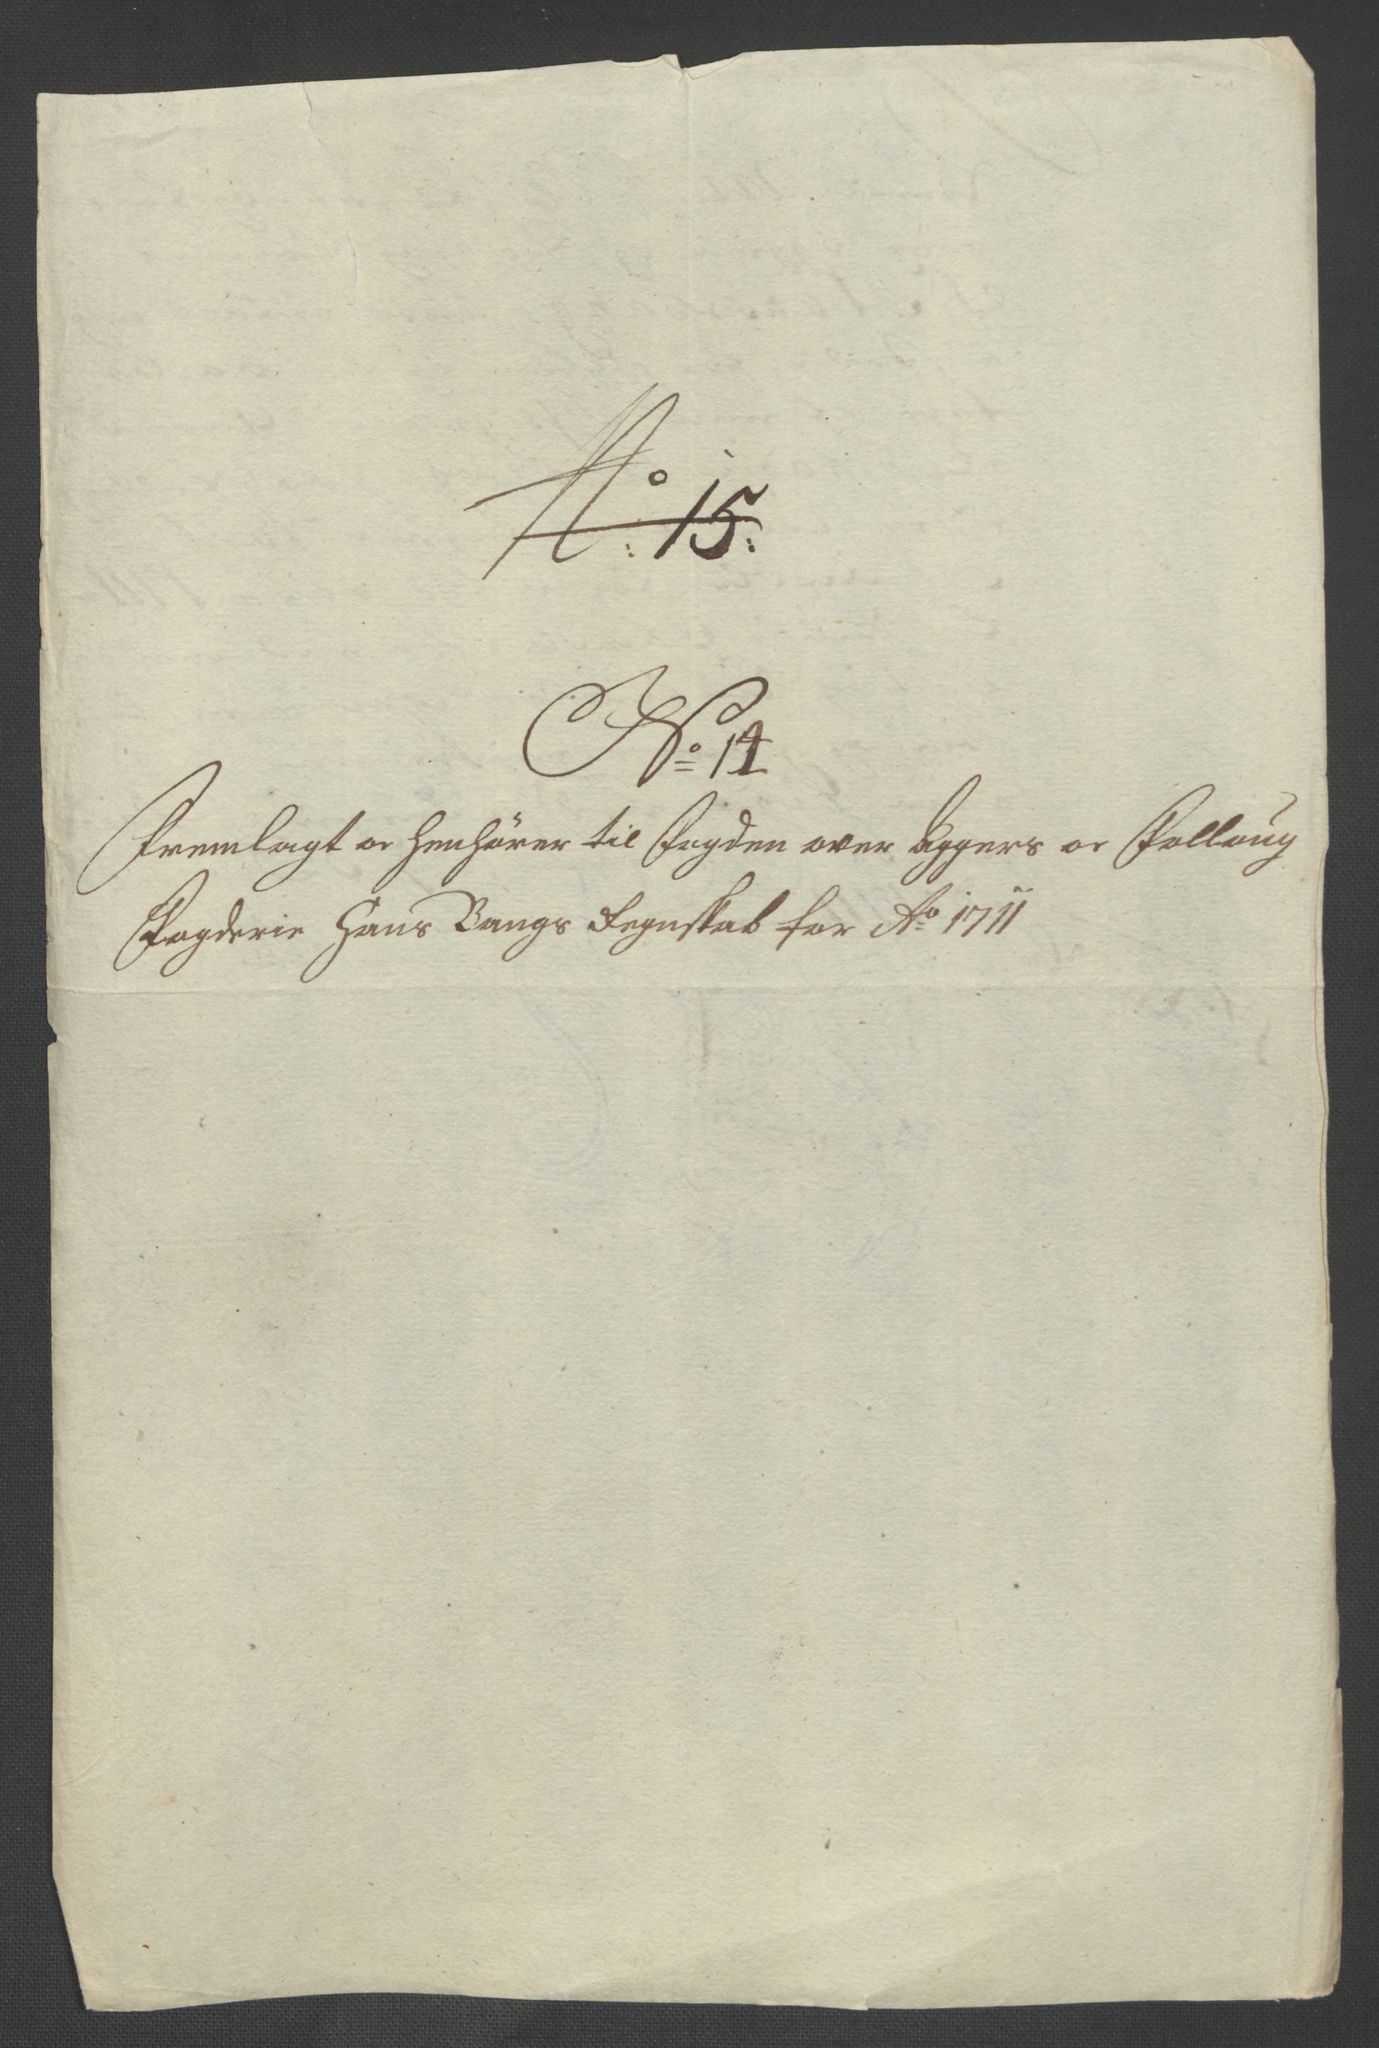 No: 15:
No 14
Fremlagt oc henhörer til Fogden over Aggers oc Folloug
Fogderie Hans Bangs Regnskab for Ao 1711